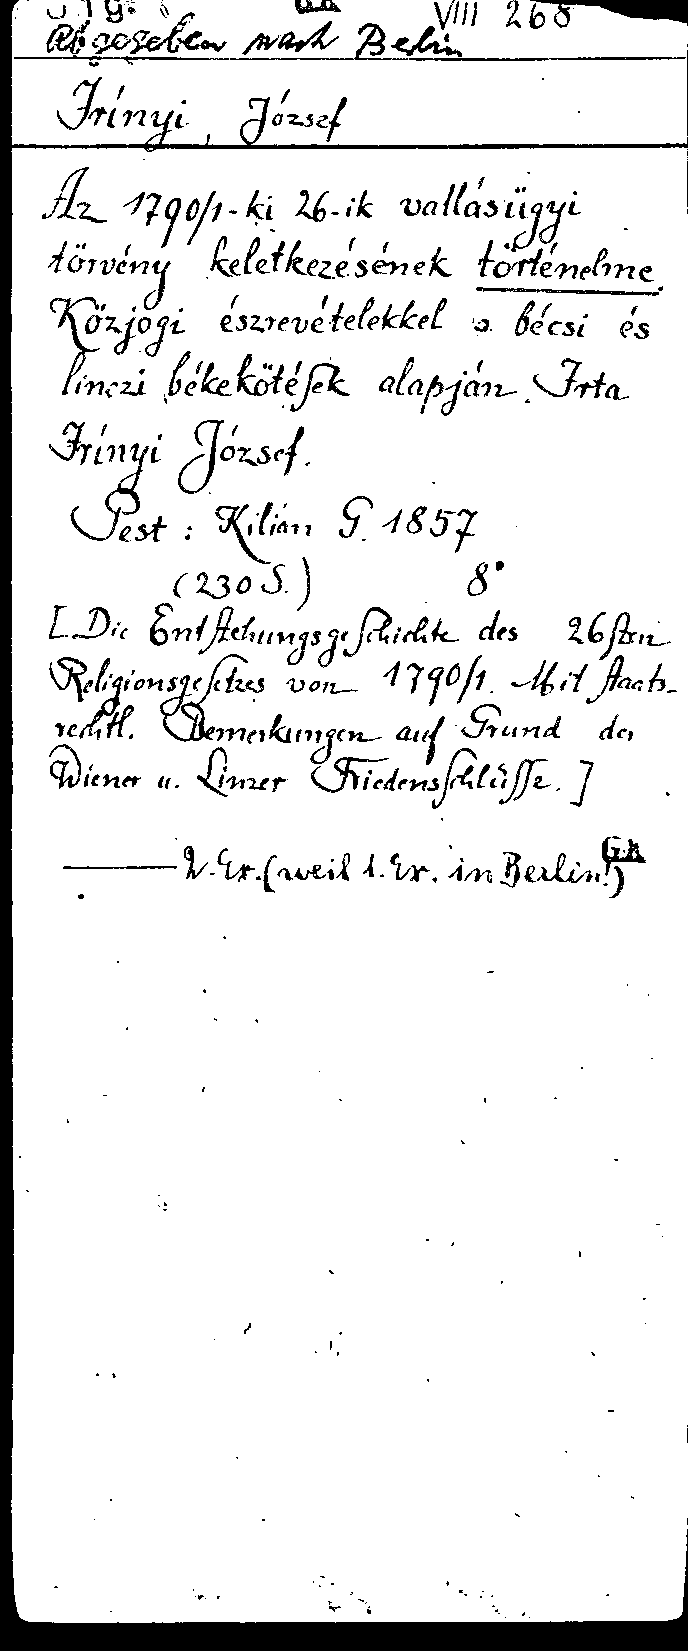 VIII 268
Abgegeben nach Berlin
Irínyi, József
Az 1790/1-ki 26-ik vallásügyi
törvény keletkezésének történelme.
Közjogi észrevételekkel a bécsi és
linczi békekötések alapján. Irta
Irínyi József.
Pest : Kilián G. 1857
(230 S.) 8°
[Die Entstehungsgeschichte des 26sten
Religionsgesetzes von 1790/1. Mit staats-
rechtl. Bemerkungen auf Grund der
Wiener u. Linzer Friedensschlüsse.]
——— 2. Ex. (weil 1. Ex. in Berlin!)